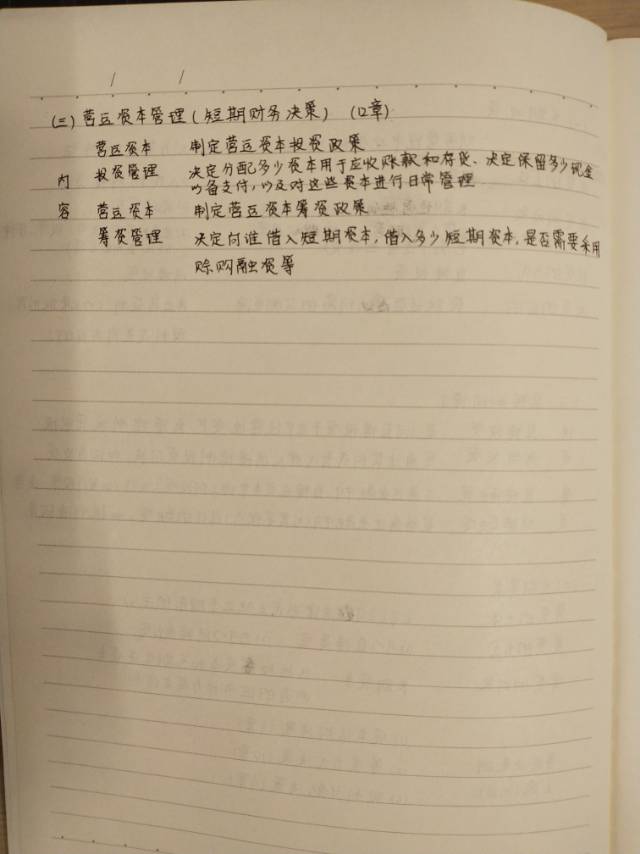 (三) 营运资本管理(短期财务决策) (12章)
营运资本 制定营运资本投资政策
内 投资管理 决定分配多少资本用于应收账款和存货、决定保留多少现金
以备支付,以及对这些资本进行日常管理
容 营运资本 制定营运资本筹资政策
筹资管理 决定向谁借入短期资本,借入多少短期资本,是否需要采用
赊购融资等